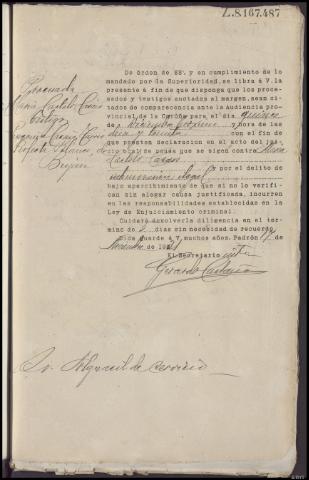 L.8.167.487
De órden de SSª. y en cumplimiento de lo
mandado por la Superioridad, se libra á V. la
presente á fin de que disponga que los proce-
sados y testigos anotados al margen, sean ci-
tados de comparecencia ante la Audiencia pro-
vincial de la Coruña para el día quince
de Diciembre próximo y hora de las
diez y media con el fin de
que presten declaracion en el acto del jui-
cio oral de pésima que se sigue contra
Castelo Casas por el delito de
inhumación ilegal
bajo apercibimiento de que si no lo verifi-
can sin alegar causa justificada, incurren
en las responsabilidades establecidas en la
Ley de Enjuiciamiento criminal.
Cuidará devolverla diligencia en el tér-
mino de 2 dias sin necesidad de recuerdo
Dios guarde á V. muchos años. Padrón 17 de
Noviembre de 19
El Secretario
Gerardo
Procesada
María Castelo Casas
testigos
Sr. Alguacil de servicio